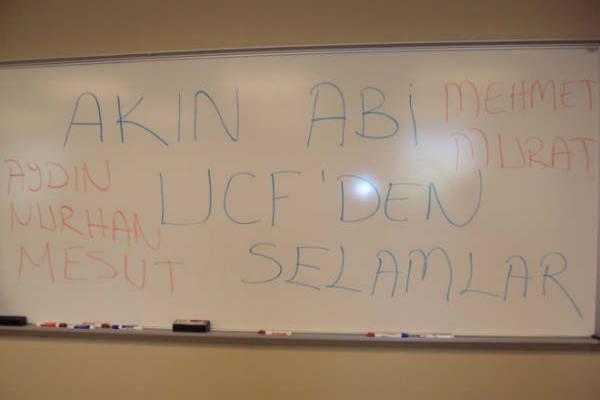 AKIN ABİ
UCF'DEN
SELAMLAR
MEHMET
MURAT
AYDIN
NURHAN
MESUT